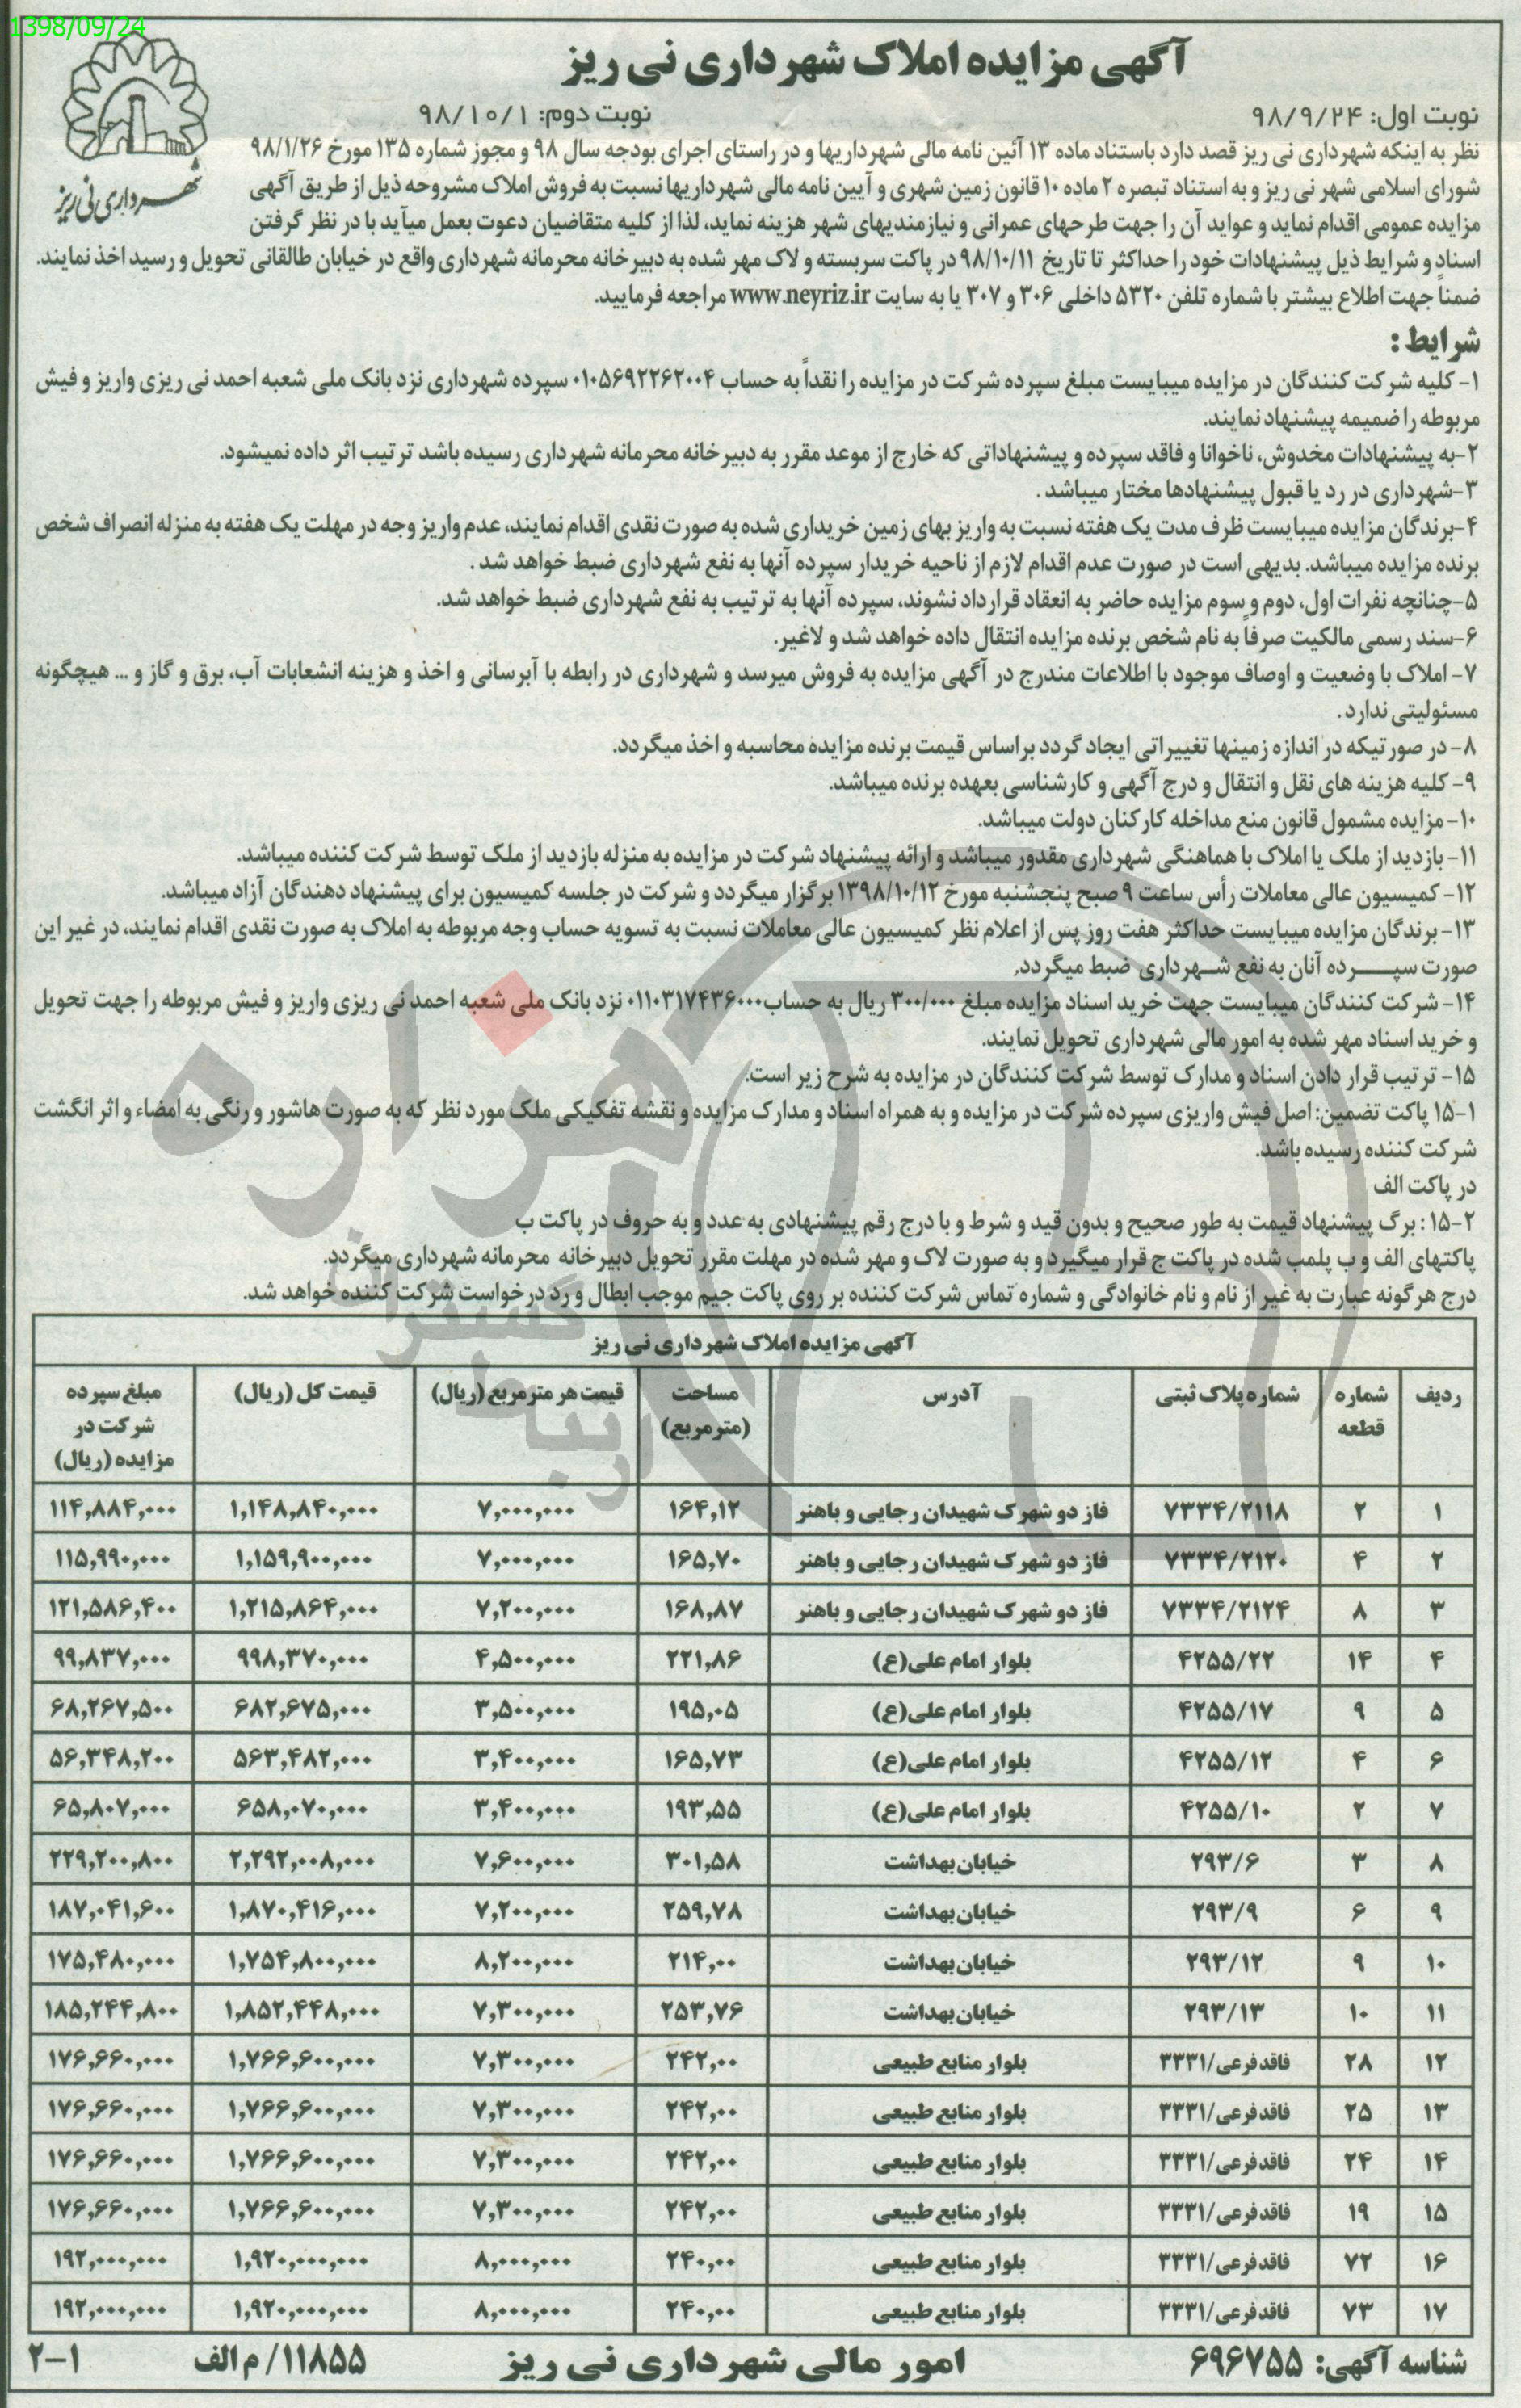 1398/09/24
آگهی مزایده املاک شهرداری نی ریز
نوبت اول: ۹۸/۹/۲۴ نوبت دوم: ۹۸/۱۰/۱
شهرداری نی ریز
نظر به اینکه شهرداری نی ریز قصد دارد باستناد ماده ۱۳ آئین نامه مالی شهرداریها و در راستای اجرای بودجه سال ۹۸ و مجوز شماره ۱۳۵ مورخ ۹۸/۱/۲۶
شورای اسلامی شهر نی ریز و به استناد تبصره ۲ ماده ۱۰ قانون زمین شهری و آیین نامه مالی شهرداریها نسبت به فروش املاک مشروحه ذیل از طریق آگهی
مزایده عمومی اقدام نماید و عواید آن را جهت طرحهای عمرانی و نیازمندیهای شهر هزینه نماید، لذا از کلیه متقاضیان دعوت بعمل میآید با در نظر گرفتن
اسناد و شرایط ذیل پیشنهادات خود را حداکثر تا تاریخ ۹۸/۱۰/۱۱ در پاکت سربسته و لاک مهر شده به دبیرخانه محرمانه شهرداری واقع در خیابان طالقانی تحویل و رسید اخذ نمایند.
ضمناً جهت اطلاع بیشتر با شماره تلفن ۵۳۲۰ داخلی ۳۰۶ و ۳۰۷ یا به سایت www.neyriz.ir مراجعه فرمایید.
شرایط :
۱- کلیه شرکت کنندگان در مزایده میبایست مبلغ سپرده شرکت در مزایده را نقداً به حساب ۰۱۰۵۶۹۲۲۶۲۰۰۴ سپرده شهرداری نزد بانک ملی شعبه احمد نی ریزی واریز و فیش
مربوطه را ضمیمه پیشنهاد نمایند.
۲-به پیشنهادات مخدوش، ناخوانا و فاقد سپرده و پیشنهاداتی که خارج از موعد مقرر به دبیرخانه محرمانه شهرداری رسیده باشد ترتیب اثر داده نمیشود.
۳-شهرداری در رد یا قبول پیشنهادها مختار میباشد .
۴-برندگان مزایده میبایست ظرف مدت یک هفته نسبت به واریز بهای زمین خریداری شده به صورت نقدی اقدام نمایند، عدم واریز وجه در مهلت یک هفته به منزله انصراف شخص
برنده مزایده میباشد. بدیهی است در صورت عدم اقدام لازم از ناحیه خریدار سپرده آنها به نفع شهرداری ضبط خواهد شد .
۵-چنانچه نفرات اول، دوم و سوم مزایده حاضر به انعقاد قرارداد نشوند، سپرده آنها به ترتیب به نفع شهرداری ضبط خواهد شد.
۶-سند رسمی مالکیت صرفاً به نام شخص برنده مزایده انتقال داده خواهد شد و لاغیر.
۷- املاک با وضعیت و اوصاف موجود با اطلاعات مندرج در آگهی مزایده به فروش میرسد و شهرداری در رابطه با آبرسانی و اخذ و هزینه انشعابات آب، برق و گاز و ... هیچگونه
مسئولیتی ندارد .
۸- در صورتیکه در اندازه زمینها تغییراتی ایجاد گردد براساس قیمت برنده مزایده محاسبه و اخذ میگردد.
۹- کلیه هزینه های نقل و انتقال و درج آگهی و کارشناسی بعهده برنده میباشد.
۱۰- مزایده مشمول قانون منع مداخله کارکنان دولت میباشد.
۱۱- بازدید از ملک یا املاک با هماهنگی شهرداری مقدور میباشد و ارائه پیشنهاد شرکت در مزایده به منزله بازدید از ملک توسط شرکت کننده میباشد.
۱۲- کمیسیون عالی معاملات رأس ساعت ۹ صبح پنجشنبه مورخ ۱۳۹۸/۱۰/۱۲ برگزار میگردد و شرکت در جلسه کمیسیون برای پیشنهاد دهندگان آزاد میباشد.
۱۳- برندگان مزایده میبایست حداکثر هفت روز پس از اعلام نظر کمیسیون عالی معاملات نسبت به تسویه حساب وجه مربوطه به املاک به صورت نقدی اقدام نمایند، در غیر این
صورت سپرده آنان به نفع شهرداری ضبط میگردد.
۱۴- شرکت کنندگان میبایست جهت خرید اسناد مزایده مبلغ ۳۰۰/۰۰۰ ریال به حساب ۰۱۱۰۳۱۷۴۳۶۰۰۰ نزد بانک ملی شعبه احمد نی ریزی واریز و فیش مربوطه را جهت تحویل
و خرید اسناد مهر شده به امور مالی شهرداری تحویل نمایند.
۱۵- ترتیب قرار دادن اسناد و مدارک توسط شرکت کنندگان در مزایده به شرح زیر است.
۱۵-۱ پاکت تضمین: اصل فیش واریزی سپرده شرکت در مزایده و به همراه اسناد و مدارک مزایده و نقشه تفکیکی ملک مورد نظر که به صورت هاشور و رنگی به امضاء و اثر انگشت
شرکت کننده رسیده باشد.
در پاکت الف
۱۵-۲ : برگ پیشنهاد قیمت به طور صحیح و بدون قید و شرط و با درج رقم پیشنهادی به عدد و به حروف در پاکت ب
پاکتهای الف و ب پلمب شده در پاکت ج قرار میگیرد و به صورت لاک و مهر شده در مهلت مقرر تحویل دبیرخانه محرمانه شهرداری میگردد.
درج هرگونه عبارت به غیر از نام و نام خانوادگی و شماره تماس شرکت کننده بر روی پاکت جیم موجب ابطال و رد درخواست شرکت کننده خواهد شد.
هزاره
آگهی مزایده املاک شهرداری نی ریز
ردیف شماره قطعه شماره پلاک ثبتی آدرس مساحت (مترمربع) قیمت هر مترمربع (ریال) قیمت کل (ریال) مبلغ سپرده شرکت در مزایده (ریال)
۱ ۲ ۷۳۳۴/۲۱۱۸ فاز دو شهرک شهیدان رجایی و باهنر ۱۶۴,۱۲ ۷,۰۰۰,۰۰۰ ۱,۱۴۸,۸۴۰,۰۰۰ ۱۱۴,۸۸۴,۰۰۰
۲ ۴ ۷۳۳۴/۲۱۲۰ فاز دو شهرک شهیدان رجایی و باهنر ۱۶۵,۷۰ ۷,۰۰۰,۰۰۰ ۱,۱۵۹,۹۰۰,۰۰۰ ۱۱۵,۹۹۰,۰۰۰
۳ ۸ ۷۳۳۴/۲۱۲۴ فاز دو شهرک شهیدان رجایی و باهنر ۱۶۸,۸۷ ۷,۲۰۰,۰۰۰ ۱,۲۱۵,۸۶۴,۰۰۰ ۱۲۱,۵۸۶,۴۰۰
۴ ۱۴ ۴۲۵۵/۲۲ بلوار امام علی(ع) ۲۲۱,۸۶ ۴,۵۰۰,۰۰۰ ۹۹۸,۳۷۰,۰۰۰ ۹۹,۸۳۷,۰۰۰
۵ ۹ ۴۲۵۵/۱۷ بلوار امام علی(ع) ۱۹۵,۰۵ ۳,۵۰۰,۰۰۰ ۶۸۲,۶۷۵,۰۰۰ ۶۸,۲۶۷,۵۰۰
۶ ۴ ۴۲۵۵/۱۲ بلوار امام علی(ع) ۱۶۵,۷۳ ۳,۴۰۰,۰۰۰ ۵۶۳,۴۸۲,۰۰۰ ۵۶,۳۴۸,۲۰۰
۷ ۲ ۴۲۵۵/۱۰ بلوار امام علی(ع) ۱۹۳,۵۵ ۳,۴۰۰,۰۰۰ ۶۵۸,۰۷۰,۰۰۰ ۶۵,۸۰۷,۰۰۰
۸ ۳ ۲۹۳/۶ خیابان بهداشت ۳۰۱,۵۸ ۷,۶۰۰,۰۰۰ ۲,۲۹۲,۰۰۸,۰۰۰ ۲۲۹,۲۰۰,۸۰۰
۹ ۶ ۲۹۳/۹ خیابان بهداشت ۲۵۹,۷۸ ۷,۲۰۰,۰۰۰ ۱,۸۷۰,۴۱۶,۰۰۰ ۱۸۷,۰۴۱,۶۰۰
۱۰ ۹ ۲۹۳/۱۲ خیابان بهداشت ۲۱۴,۰۰ ۸,۲۰۰,۰۰۰ ۱,۷۵۴,۸۰۰,۰۰۰ ۱۷۵,۴۸۰,۰۰۰
۱۱ ۱۰ ۲۹۳/۱۳ خیابان بهداشت ۲۵۳,۷۶ ۷,۳۰۰,۰۰۰ ۱,۸۵۲,۴۴۸,۰۰۰ ۱۸۵,۲۴۴,۸۰۰
۱۲ ۲۸ فاقد فرعی/۳۳۳۱ بلوار منابع طبیعی ۲۴۲,۰۰ ۷,۳۰۰,۰۰۰ ۱,۷۶۶,۶۰۰,۰۰۰ ۱۷۶,۶۶۰,۰۰۰
۱۳ ۲۵ فاقد فرعی/۳۳۳۱ بلوار منابع طبیعی ۲۴۲,۰۰ ۷,۳۰۰,۰۰۰ ۱,۷۶۶,۶۰۰,۰۰۰ ۱۷۶,۶۶۰,۰۰۰
۱۴ ۲۴ فاقد فرعی/۳۳۳۱ بلوار منابع طبیعی ۲۴۲,۰۰ ۷,۳۰۰,۰۰۰ ۱,۷۶۶,۶۰۰,۰۰۰ ۱۷۶,۶۶۰,۰۰۰
۱۵ ۱۹ فاقد فرعی/۳۳۳۱ بلوار منابع طبیعی ۲۴۲,۰۰ ۷,۳۰۰,۰۰۰ ۱,۷۶۶,۶۰۰,۰۰۰ ۱۷۶,۶۶۰,۰۰۰
۱۶ ۷۲ فاقد فرعی/۳۳۳۱ بلوار منابع طبیعی ۲۴۰,۰۰ ۸,۰۰۰,۰۰۰ ۱,۹۲۰,۰۰۰,۰۰۰ ۱۹۲,۰۰۰,۰۰۰
۱۷ ۷۳ فاقد فرعی/۳۳۳۱ بلوار منابع طبیعی ۲۴۰,۰۰ ۸,۰۰۰,۰۰۰ ۱,۹۲۰,۰۰۰,۰۰۰ ۱۹۲,۰۰۰,۰۰۰
شناسه آگهی: ۶۹۶۷۵۵ امور مالی شهرداری نی ریز ۱۱۸۵۵/ م الف ۲-۱